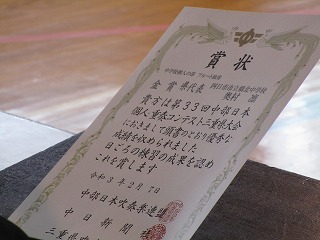 賞状
中学校個人の部 フルート独奏
金賞 県代表
貴方は第33回中部日本
個人・重奏コンテスト三重県大会
におきまして頭書のとおり優秀な
成績を収められました
日ごろの練習の成果を認め
これを賞します
令和3年2月7日
中部日本吹奏楽連盟
中日新聞社
三重県吹